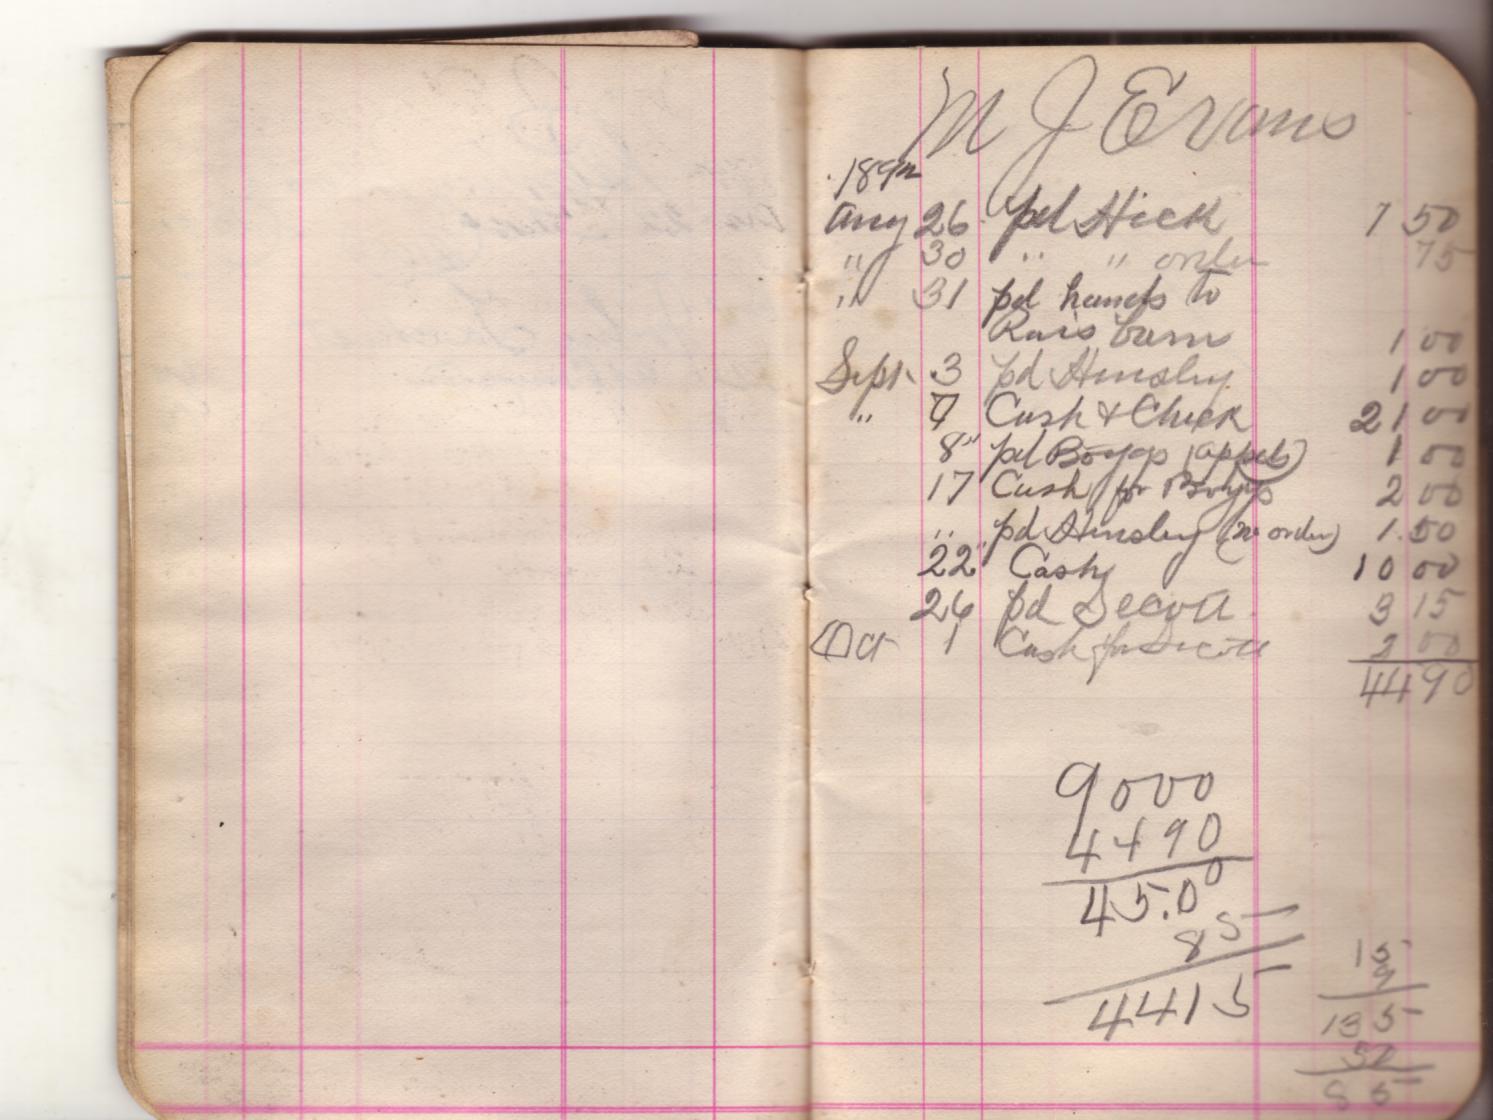 M J Evans
189
Aug 26 pd Hick 1 50
" 30 " " order 75
" 31 pd hands to
Rais barn 1 00
Sept. 3 pd Hensley 1 00
" 7 Cash & Check 21 00
8" pd Boggs (appels) 1 00
17 Cash for Boggs 2 00
" pd Hensley (no order) 1.50
22" Cash 10 00
26 pd Secott 3 15
Oct 1 Cash for Secott 2 00
4490
9000
4490
45.00
85
4415
15
9
135
50
85